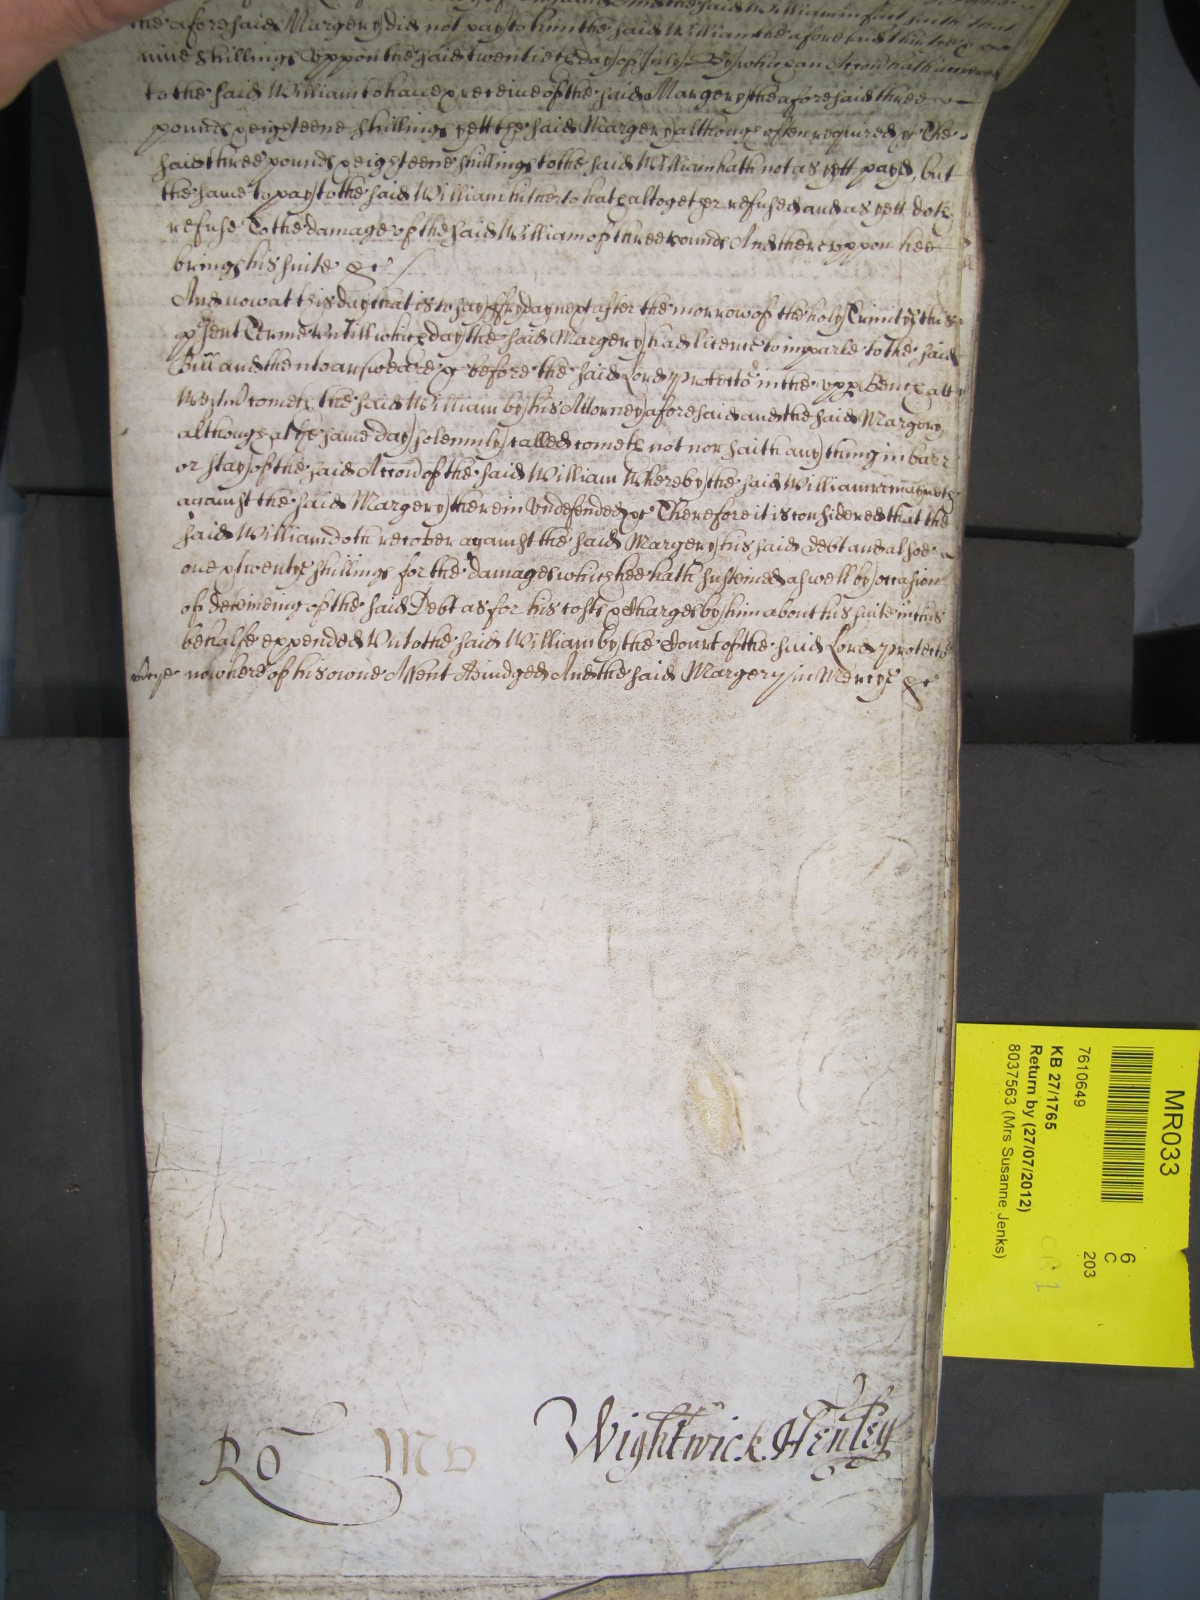 the aforesaid Margery did not pay to him the said William the aforesaid three
nine shillings uppon the said twentieth day of July By which an Accon hath accrewed
to the said William to have & receive of the said Margery the aforesaid three
pounds & eighteene shillings yett the said Margery although often required &c The
said three pounds & eighteene shillings to the said William hath not as yett payd, but
the same to pay to the said William hitherto hath altogether refused and as yett doth
refuse To the damage of the said William of three pounds And thereuppon hee
brings his suite &c
And now at this day that is to say ffryday next after the morrow of the holy Trinity this
p'sent Terme Untill which day the said Margery had licence to imparle to the said
Bill and then to answeare &c before the said Lord Protector in the upp Bench att
Westm cometh the said William by his Attorney aforesaid and the said Margery
although at the same day solemnly called cometh not nor saith any thing in barr
or stay of the said Accon of the said William Whereby the said William remayneth
against the said Margery therein Undefended &c Therefore it is considered that the
said William doth recover against the said Margery his said Debt and alsoe
one & twenty shillings for the damages which hee hath susteined as well by occasion
of deteineing of the said Debt as for his costs & charges by him about his suite in this
behalfe expended Unto the said William by the Court of the said Lord Protector
now here of his owne Assent Adiudged And the said Margery in Mercye &c
Mercye
Ro
Wightwick. Henley
MR033
7610649
KB 27/1765
Return by (27/07/2012)
8037563 (Mrs Susanne Jenks)
6
C
203